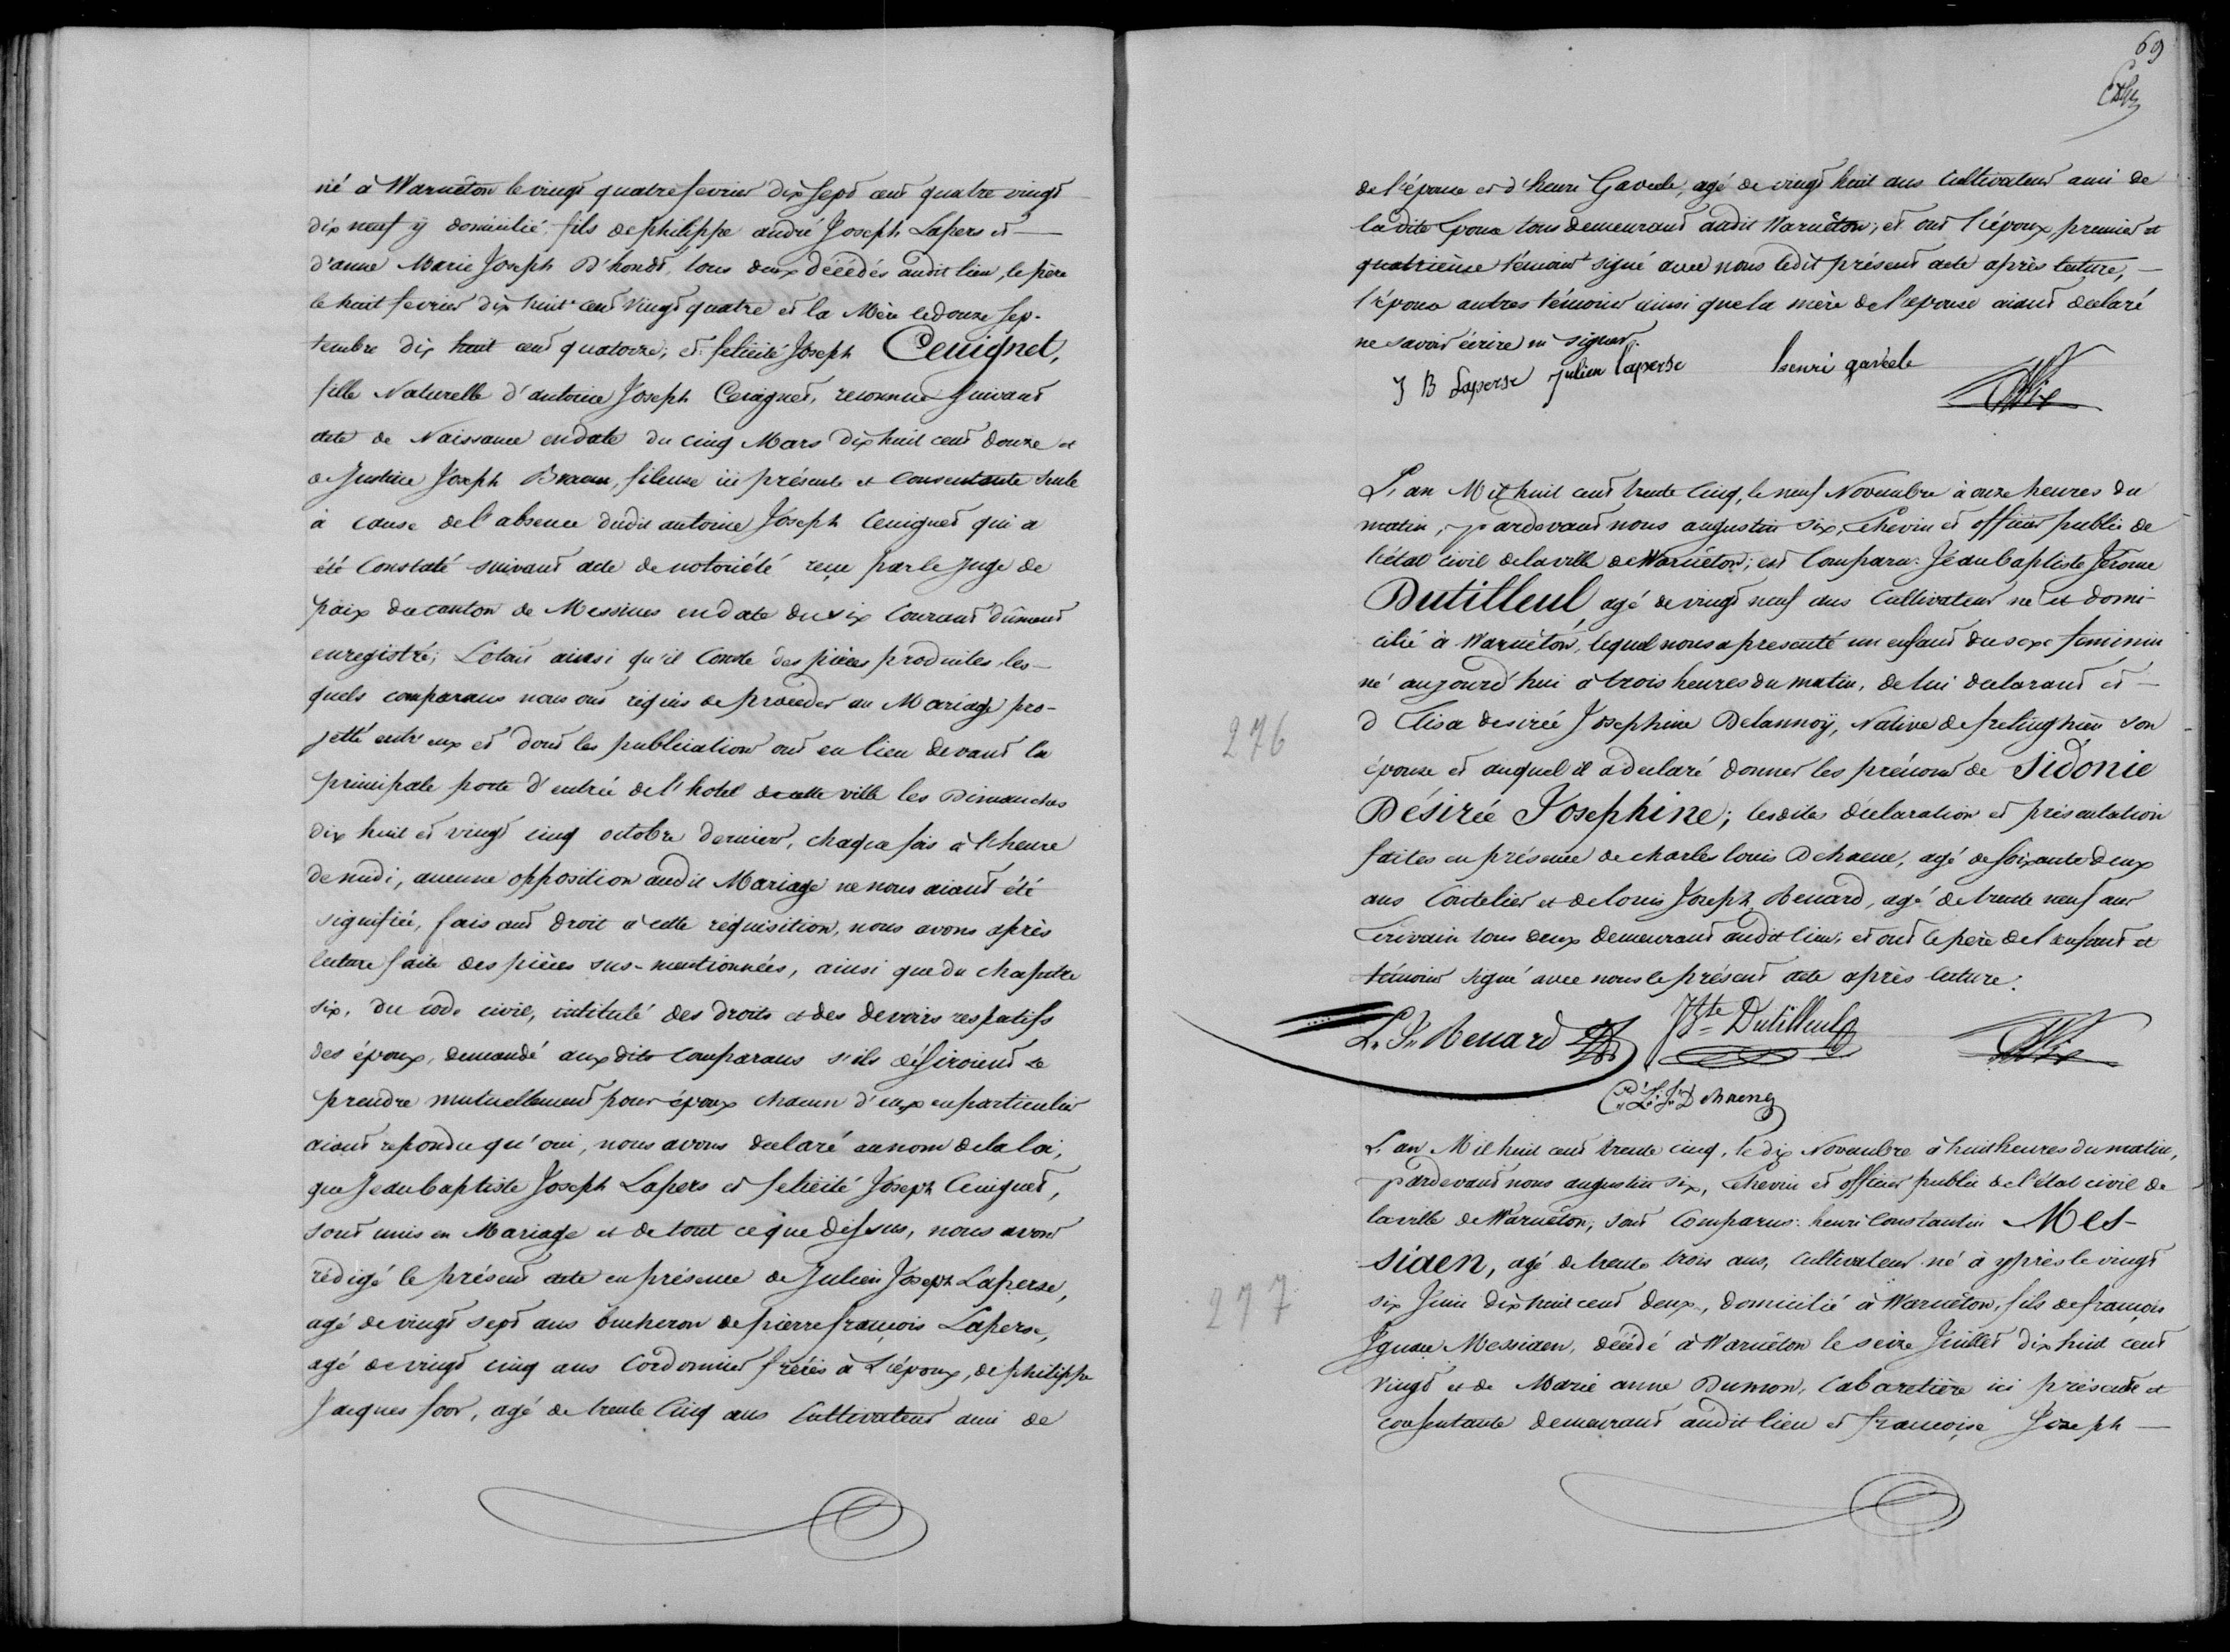 né à Warnêton le vingt quatre fevrier dix sept cent quatre vingt
dix neuf y domicilié, fils de philippe andré Joseph Lapers et
d'anne Marie Joseph D'hondt, tous deux décédés audit lieu, le père
le huit fevrier dix huit cent vingt quatre et la Mère le douze sep-
tembre dix huit cent quatorze; et felicité Joseph Ceuignet,
fille Naturelle d'antoine Joseph Ceuignet, reconnue suivant
acte de Naissance en date du cinq Mars dix huit cent douze et
de Justine Joseph fileuse ici présente et consentante seule
à cause de l'absence dudit antoine Joseph Ceuignet qui a
été constaté suivant acte de notoriété reçu par le Juge de
paix du canton de Messines en date du six courant dûment
enregistré; Letout ainsi qu'il conste des pièces produites, les-
quels comparans nous ont réquis de procéder au Mariage pro-
jetté entr'eux et dont les publications ont eu lieu devant la
principale porte d'entrée de l'hotel de cette ville les Dimanches
dix huit et vingt cinq octobre dernier, chaque fois à l'heure
de midi, aucune opposition audit Mariage ne nous aiant été
signifiée, faisant droit à cette réquisition, nous avons après
lecture faite des pièces sus-mentionnées, ainsi que du chapitre
six, du code civil, intitulé des droits et des devoirs respectifs
des époux, demandé auxdits comparans s'ils désiroient se
prendre mutuellement pour époux chacun d'eux en particulier
aiant repondu qu'oui, nous avons declaré au nom de la loi,
que Jean baptiste Joseph Lapers et felicité Joseph Ceuignet,
sont unis en Mariage et de tout ce que dessus, nous avons
rédigé le présent acte en présence de Julien Joseph Laperse,
agé de vingt sept ans bucheron de pierre françois Laperse,
agé de vingt cinq ans Cordonnier frères à L'époux, de philippe
Jacques foor, agé de trente Cinq ans Cultivateur ami de
69
de l'épouse et d'henri Gaveele, agé de vingt huit ans Cultivateur ami de
ladite Epouse tous demeurant audit Warnêton; et ont l'époux, premier et
quatrième témoins signé avec nous ledit présent acte après lecture,
l'épouse autres témoins ainsi que la mère de l'epouse aiant declaré
ne savoir écrire ni signer.
J B Laperse Julien laperse henri gaveele
Six
L'an Mil huit cent trente Cinq, le neuf Novembre à onze heures du
matin, pardevant nous augustin six, Echevin et officier public de
l'état civil de la ville de Warnêton; est Comparu: Jean baptiste Jérome
Dutilleul agé de vingt neuf ans Cultivateur né et domi-
cilié à Warnêton, lequel nous a presenté un enfant du sexe feminin
né aujourd'hui à trois heures du matin, de lui declarant et
276
d'Elisa desirée Josephine Delannoÿ, Native de frelinghien son
épouse et auquel il a déclaré donner les prénoms de Sidonie
Désirée Josephine; lesdites déclaration et présentation
faites en présence de charles louis Dehaene, agé de soixante deux
ans Coutelier et de louis Joseph Renard, agé de trente neuf ans
Ecrivain tous deux demeurant audit lieu, et ont le père de l'enfant et
témoins signé avec nous le présent acte après lecture.
L. J. Renard JBte Dutilleul Six
L'an Mil huit cent trente cinq, le dix Novembre à huit heures du matin,
pardevant nous augustin six, Echevin et officier public de l'état civil de
la ville de Warnêton, sont Comparus: henri Constantin Mes-
siaen, agé de trente trois ans, Cultivateur né à ypres le vingt
277
six Juin dix huit cent deux, domicilié à Warnêton, fils de françois
Ignace Messiaen, décédé à Warnêton le seize Juillet dix huit cent
vingt et de Marie anne Dumon, Cabaretière ici présente et
consentante demeurant audit lieu et françoise Joseph